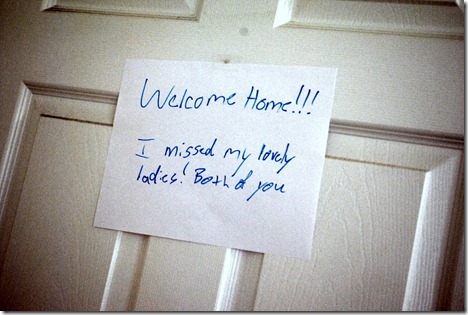 Welcome Home!!!
I missed my lovely
ladies! Both of you